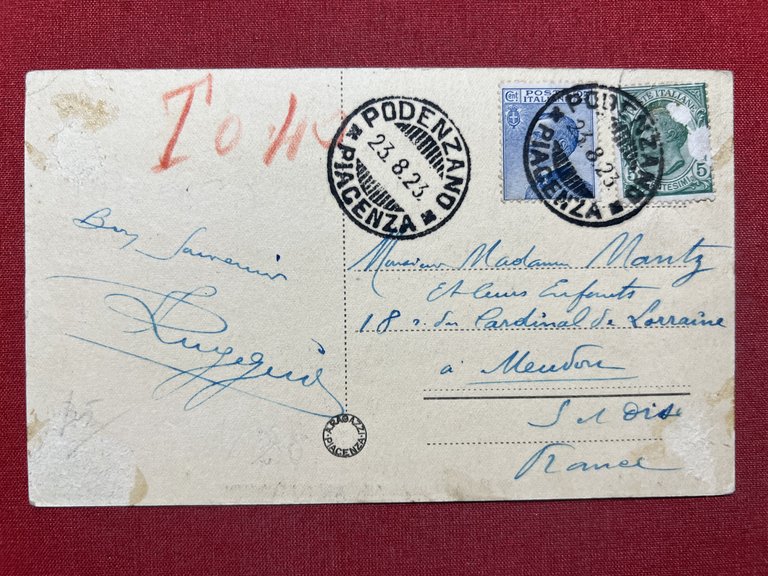 T 0,40
PODENZANO
PIACENZA
23.8.23.
Cent
POSTE
ITALIANE
PODENZANO
PIACENZA
23.8.23.
POSTE ITALIANE
5
CENTESIMI
Bon Souvenir
Monsieur Madame Mantz
et leurs Enfants
18 r du Cardinal de Lorraine
à Meudon
S et Oise
France
A. RAGAZZI
PIACENZA